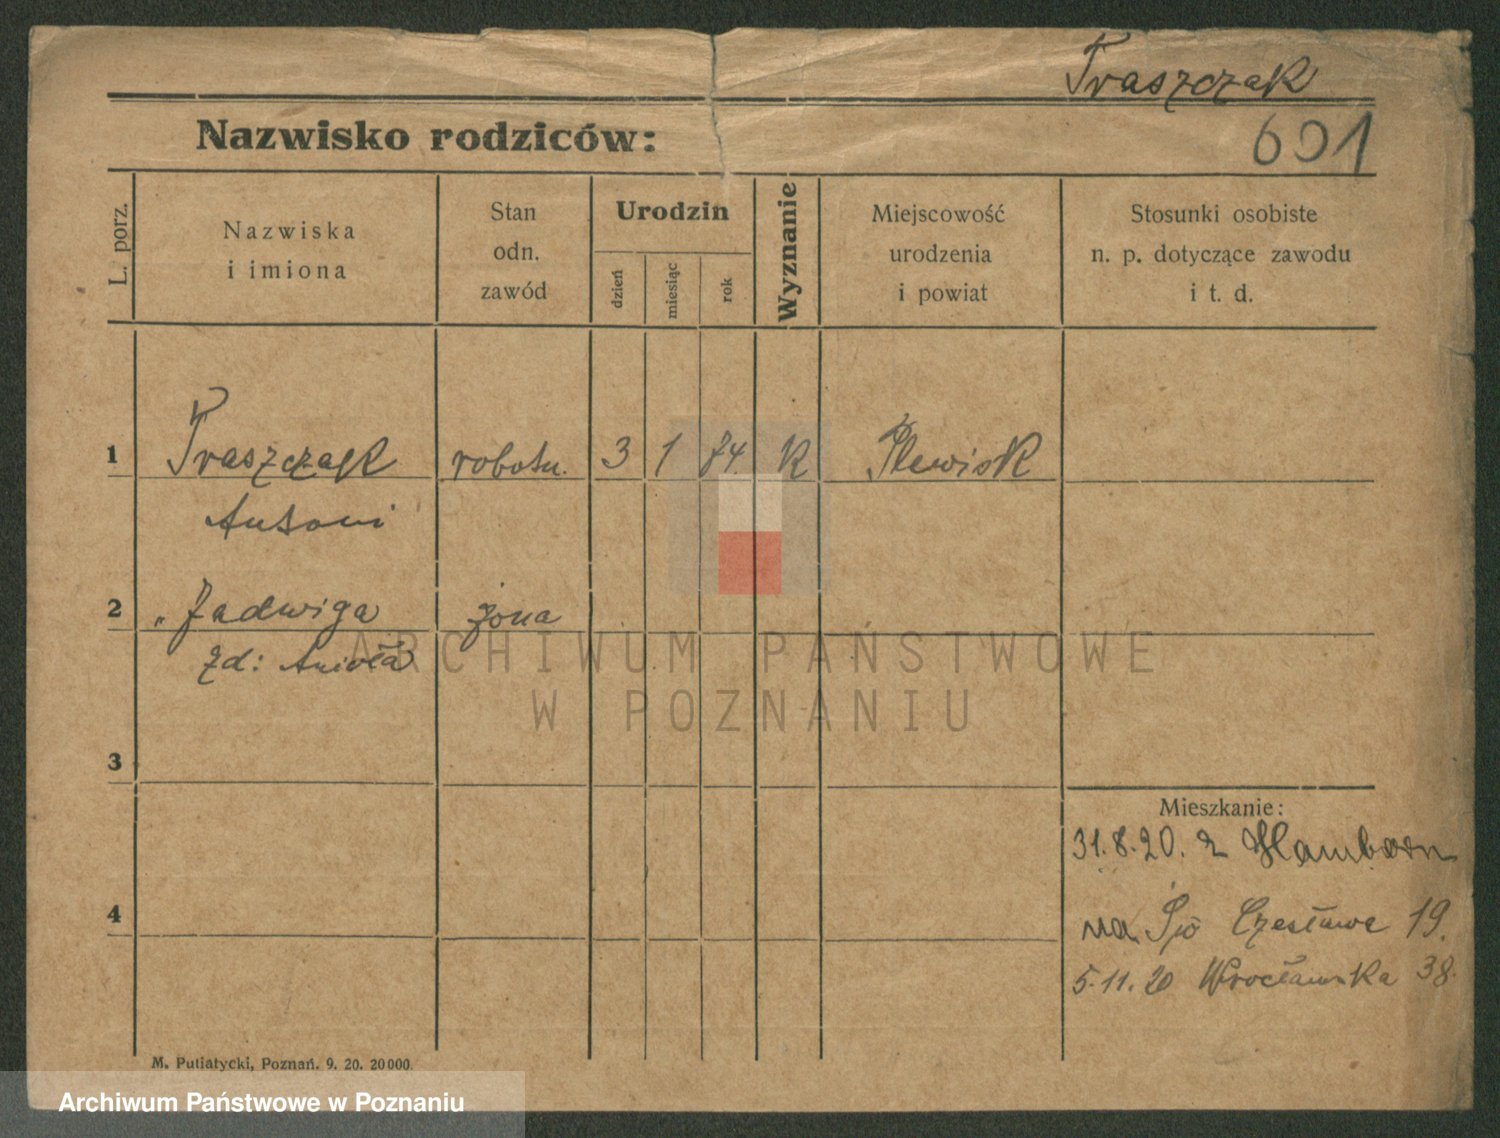 Traszczak
Nazwisko rodziców:
601
L. porz.
Nazwiska
i imiona
Stan
odn.
zawód
Urodzin
dzień
miesiąc
rok
Wyznanie
Miejscowość
urodzenia
i powiat
Stosunki osobiste
n. p. dotyczące zawodu
i t. d.
1
Traszczak robotn. 3 1 84 K Plewisk
Antoni
2
„ Jadwiga żona
zd: Anioła
ARCHIWUM PAŃSTWOWE
W POZNANIU
3
Mieszkanie:
31.8.20. z Hamborn
4
na Czesława 19.
5.11.20 Wrocławska 38.
M. Putiatycki, Poznań. 9. 20. 20000.
Archiwum Państwowe w Poznaniu